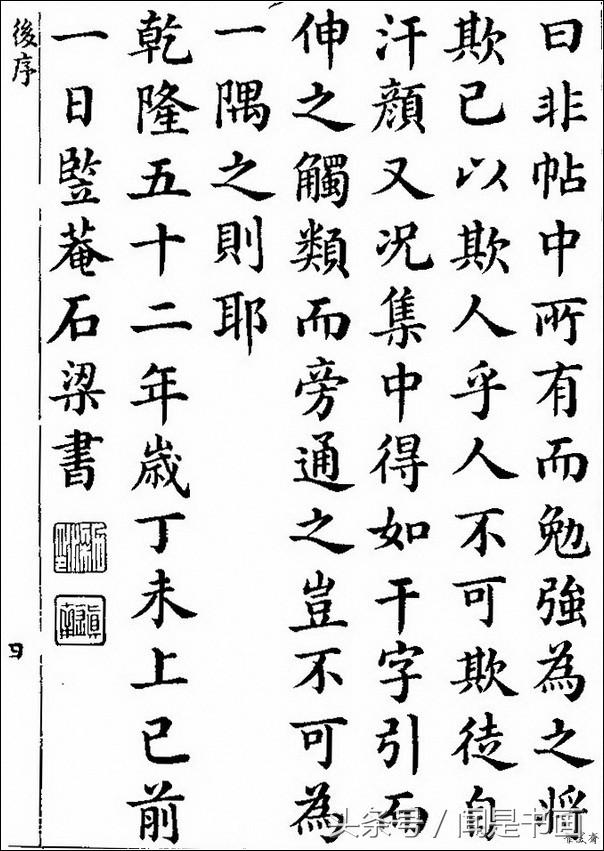 曰非帖中所有而勉強為之將
欺己以欺人乎人不可欺徒自
汗顏又况集中得如干字引而
伸之觸類而旁通之豈不可為
一隅之則耶
乾隆五十二年歲丁未上巳前
一日竪菴石梁書
後序
头条号 / 闻是书画